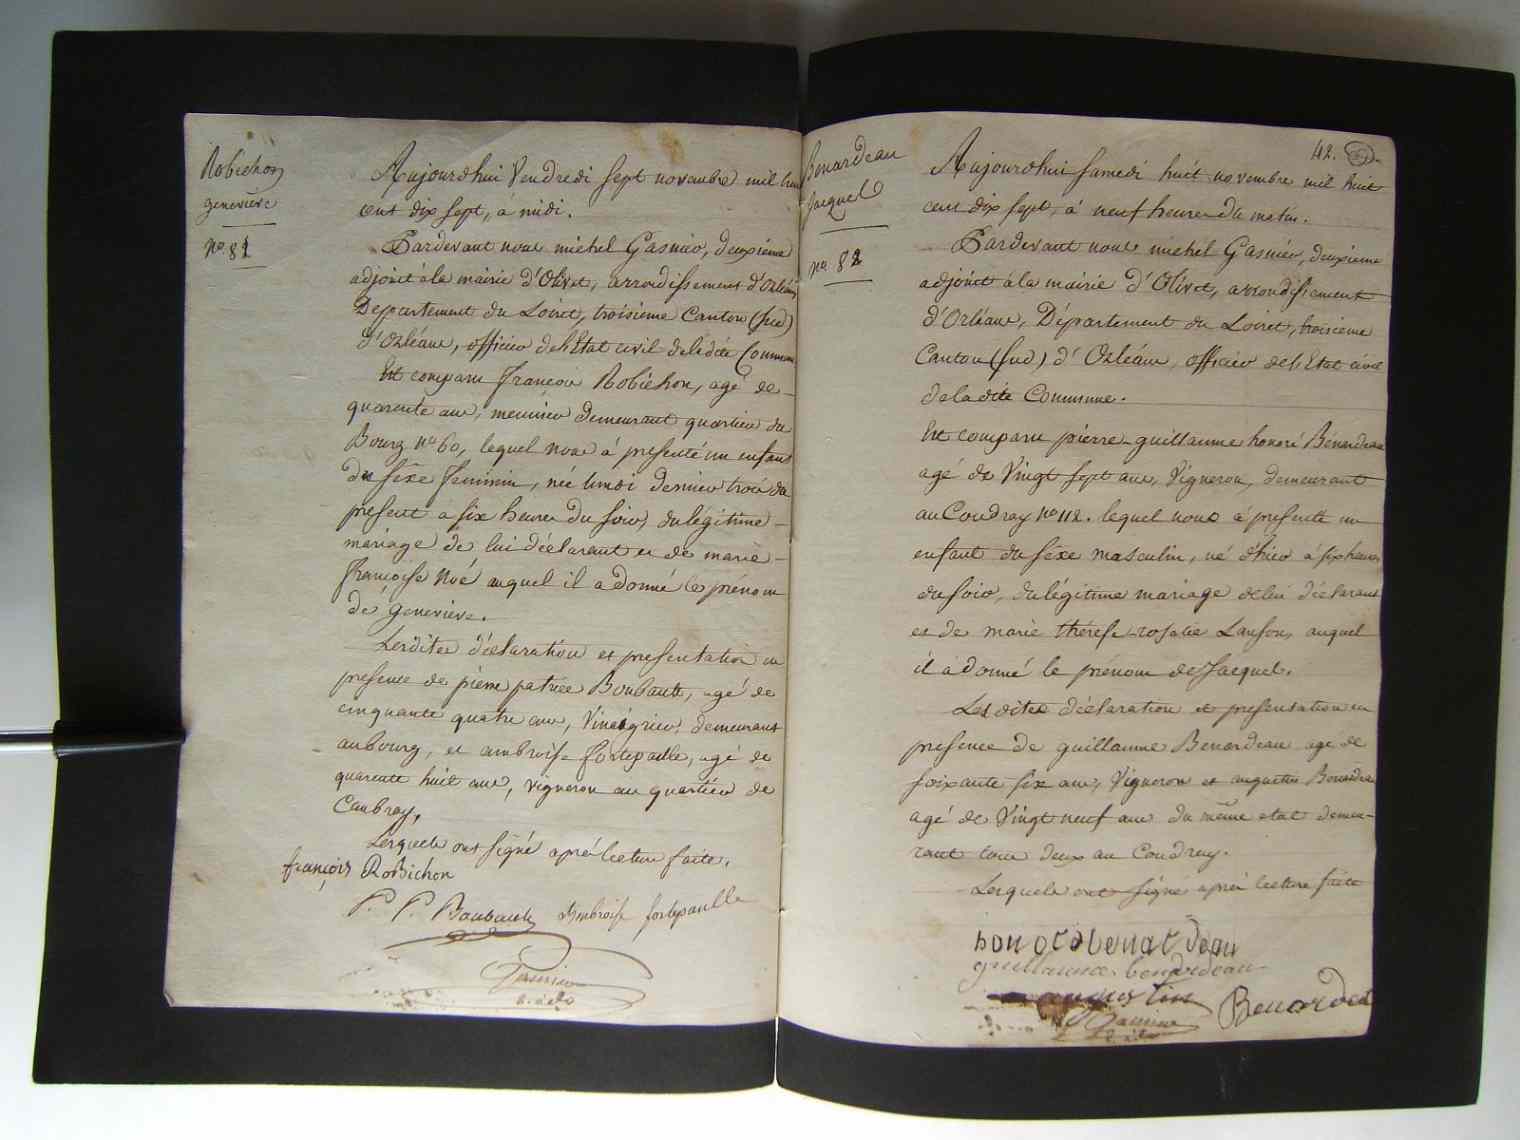 Robichon
geneviève
No. 81
Aujourdhui Vendredi sept novembre mil huit
cent dix sept, à midi.
Pardevant nous michel Gasnier, deuxieme
adjoint à la mairie d'Olivet, arrondissement d'Orléans
Département du Loiret, troisieme Canton (sud)
d'Orléans, officier de l'Etat civil de ladite Commune
Est comparu françois Robichon, agé de
quarente ans, meunier demeurant quartier du
Bourg no 60, lequel nous à presenté un enfant
du sexe feminin, née lundi dernier trois du
present à six heures du soir, du légitime
mariage de lui déclarant et de marie
françoise Noé auquel il a donné le prénom
de geneviève.
Lesdites déclaration et presentation en
presence de pierre patrice Boubault, agé de
cinquante quatre ans, Vinaigrier, demeurant
au bourg, et ambroise fortepaulle, agé de
quarente huit ans, vigneron au quartier de
Caubray,
Lesquels ont signé après lecture faite.
françois Robichon
P. P. Boubault Ambroise fortepaulle
Gasnier
42.
Benardeau
Jacques
no. 82
Aujourdhui samedi huit novembre mil huit
cent dix sept, à neuf heures du matin.
Pardevant nous michel Gasnier, deuxieme
adjoint à la mairie d'Olivet, arrondissement
d'Orléans, Département du Loiret, troisieme
Canton (sud) d'Orléans, officier de l'Etat civil
de la dite Commune.
Est comparu pierre-guillaume honoré Bénardeau
agé de Vingt sept ans, Vigneron, demeurant
au Coudray no 112. lequel nous à presenté un
enfant du sexe masculin, né d'hier à six heures
du soir, du légitime mariage de lui déclarant
et de marie thérese rosalie Lanson, auquel
il à donné le prénom de Jacques.
Les dites déclaration et presentation en
presence de guillaume Benardeau agé de
soixante six ans, Vigneron et augustin Benardeau
agé de Vingt neuf ans du même etat demeu-
rant tous deux au Coudray.
Lesquels ont signé après lecture faite
honoré benardeau
guillaume benardeau
augustin Benardeau
Gasnier